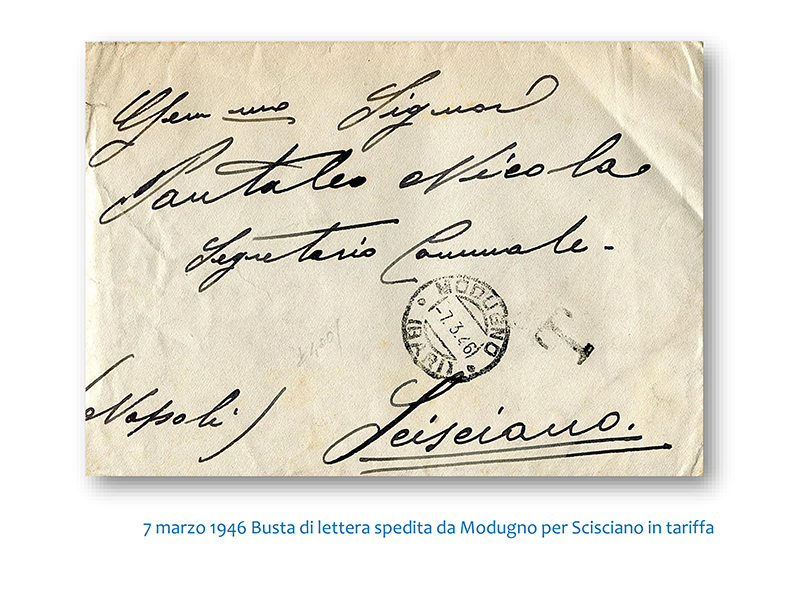 Gem mo Signor
Pantaleo Nicola
Segretario Comunale -
MODUGNO
-7.3.46
(BARI)
T
(Napoli) Scisciano.
7 marzo 1946 Busta di lettera spedita da Modugno per Scisciano in tariffa